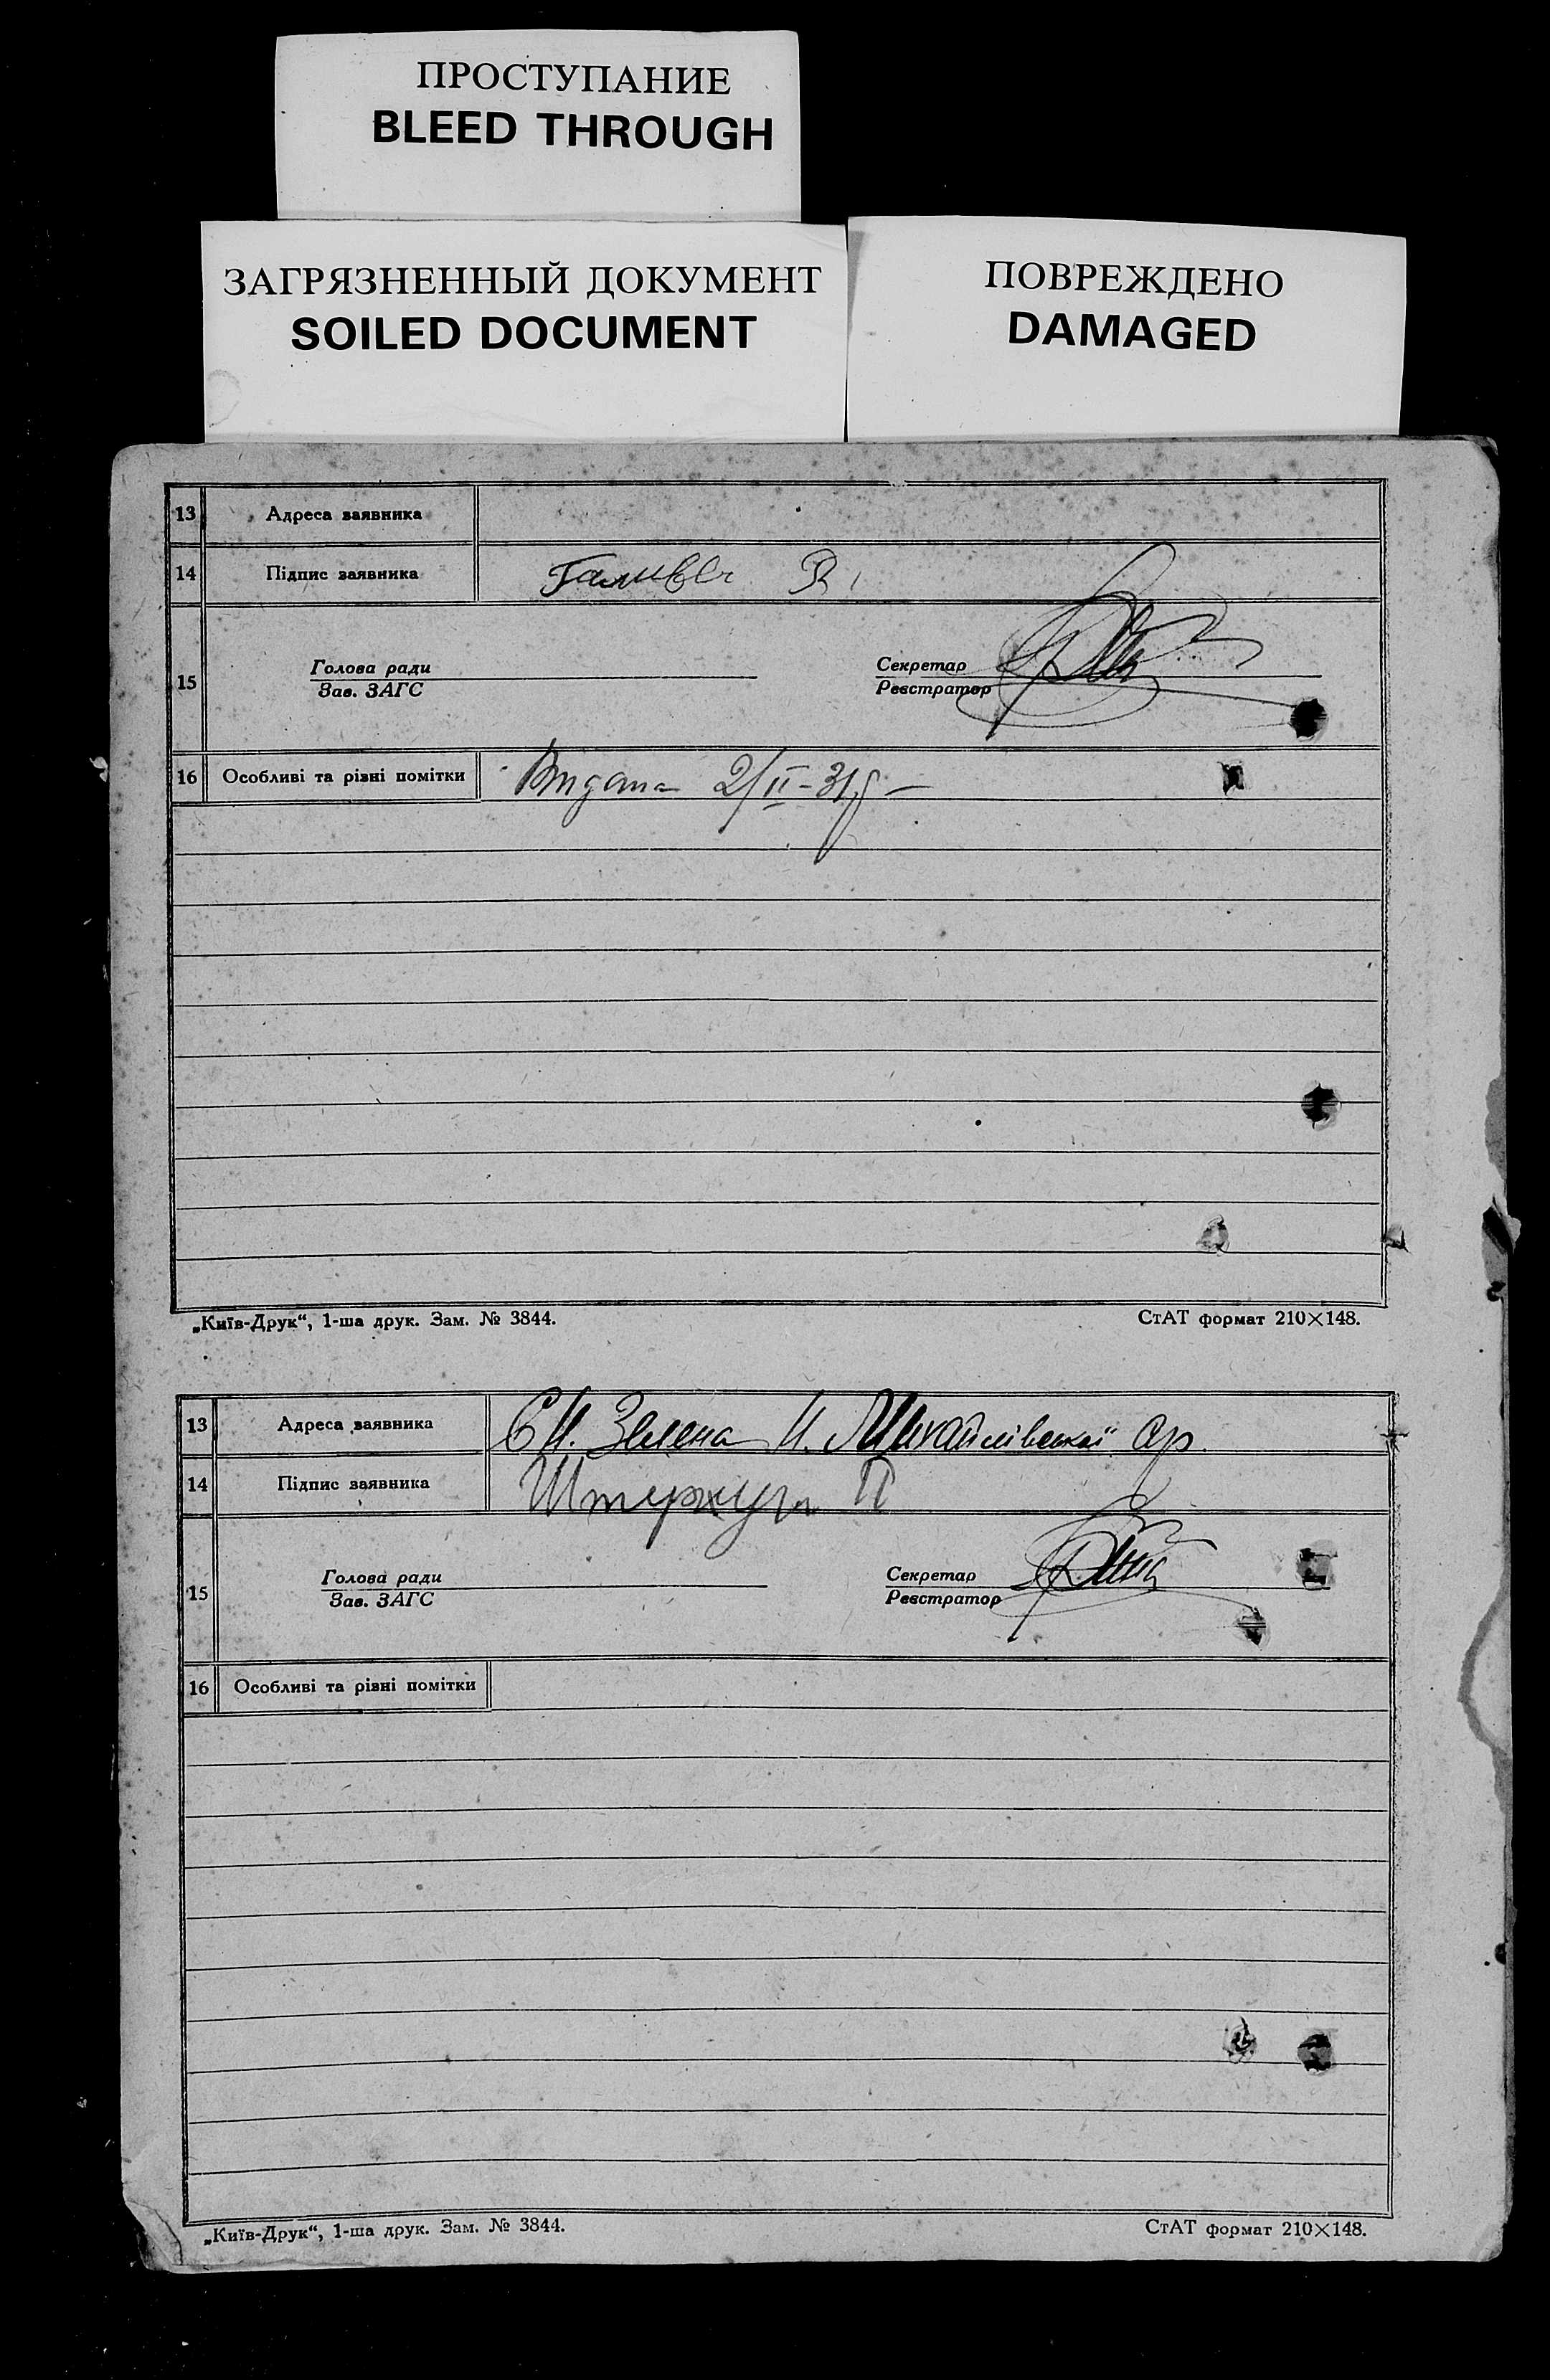 ПРОСТУПАНИЕ
BLEED THROUGH
ЗАГРЯЗНЕННЫЙ ДОКУМЕНТ
SOILED DOCUMENT
ПОВРЕЖДЕНО
DAMAGED
13 Адреса заявника
14 Підпис заявника
15 Голова ради Секретар
Зав. ЗАГС Реєстратор
16 Особливі та різні помітки Видана 2/II-31р
„Київ-Друк“, 1-ша друк. Зам. № 3844. СтАТ формат 210×148.
13 Адреса заявника Зелена Михайлівської ср.
14 Підпис заявника П
15 Голова ради Секретар
Зав. ЗАГС Реєстратор
16 Особливі та різні помітки
„Київ-Друк“, 1-ша друк. Зам. № 3844. СтАТ формат 210×148.